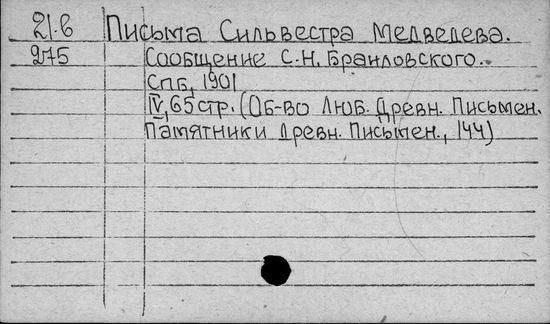 21.6 Письма Сильвестра Медведева.
275 Сообщение С.Н. Браиловского.
СПб, 1901
IV, 65 стр. (Об-во Люб. Древн. Письмен.
Памятники Древн. Письмен., 144)